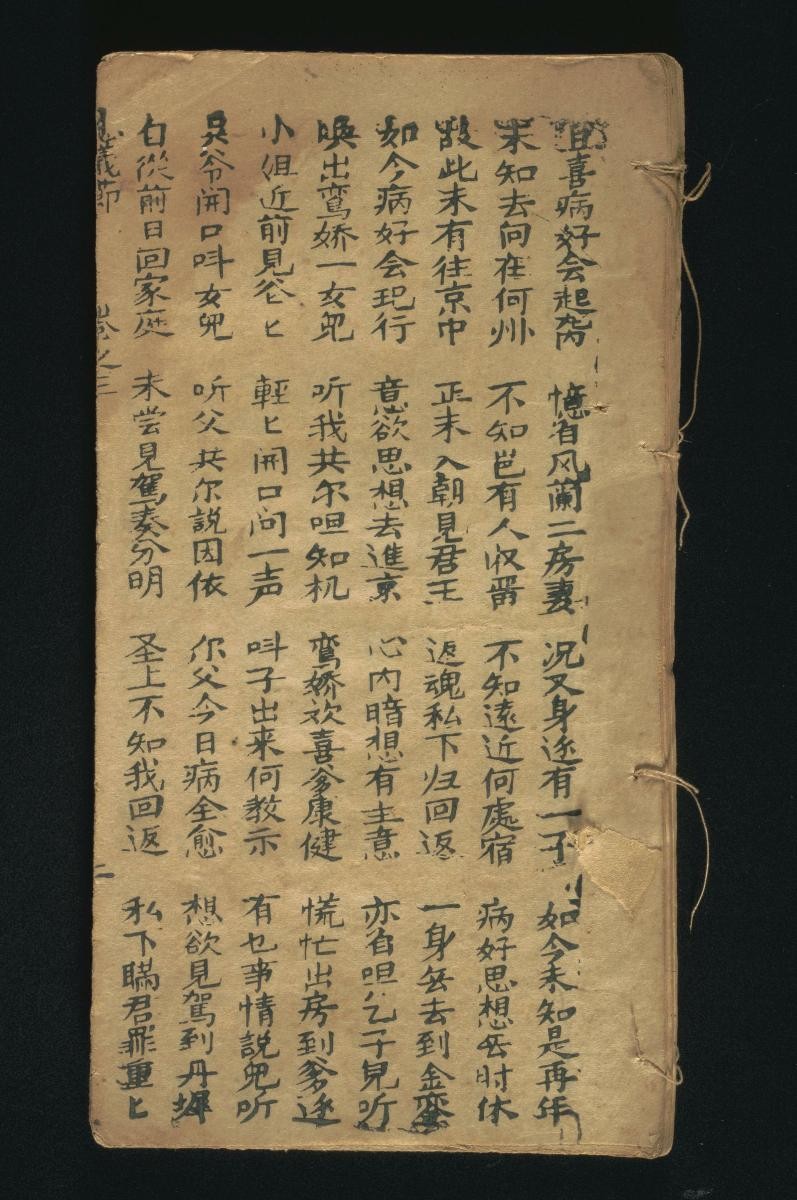 且喜病好会起床 憶着风蘭二房妻 况又身边有一子 如今未知是再年
未知去向在何州 不知岂有人收畱 不知遠近何處宿 病好思想無时休
故此未有往京中 正未入朝見君王 返魂私下归回返 一身無去到金鑾
如今病好会起行 意欲思想去進京 心内暗想有主意 亦着呾乞子兒听
喚出鸾娇一女兒 听我共尔呾知机 鸾娇欢喜爹康健 慌忙出房到爹边
小姐近前見爹匕 輕匕開口问一声 呌子出来何教示 有乜事情說兒听
吳爷開口呌女兒 听父共尔說因依 尔父今日病全愈 想欲見駕到丹墀
自從前日回家庭 未尝見駕奏分明 圣上不知我回返 私下瞞君罪重匕
儀節 卷之三 二